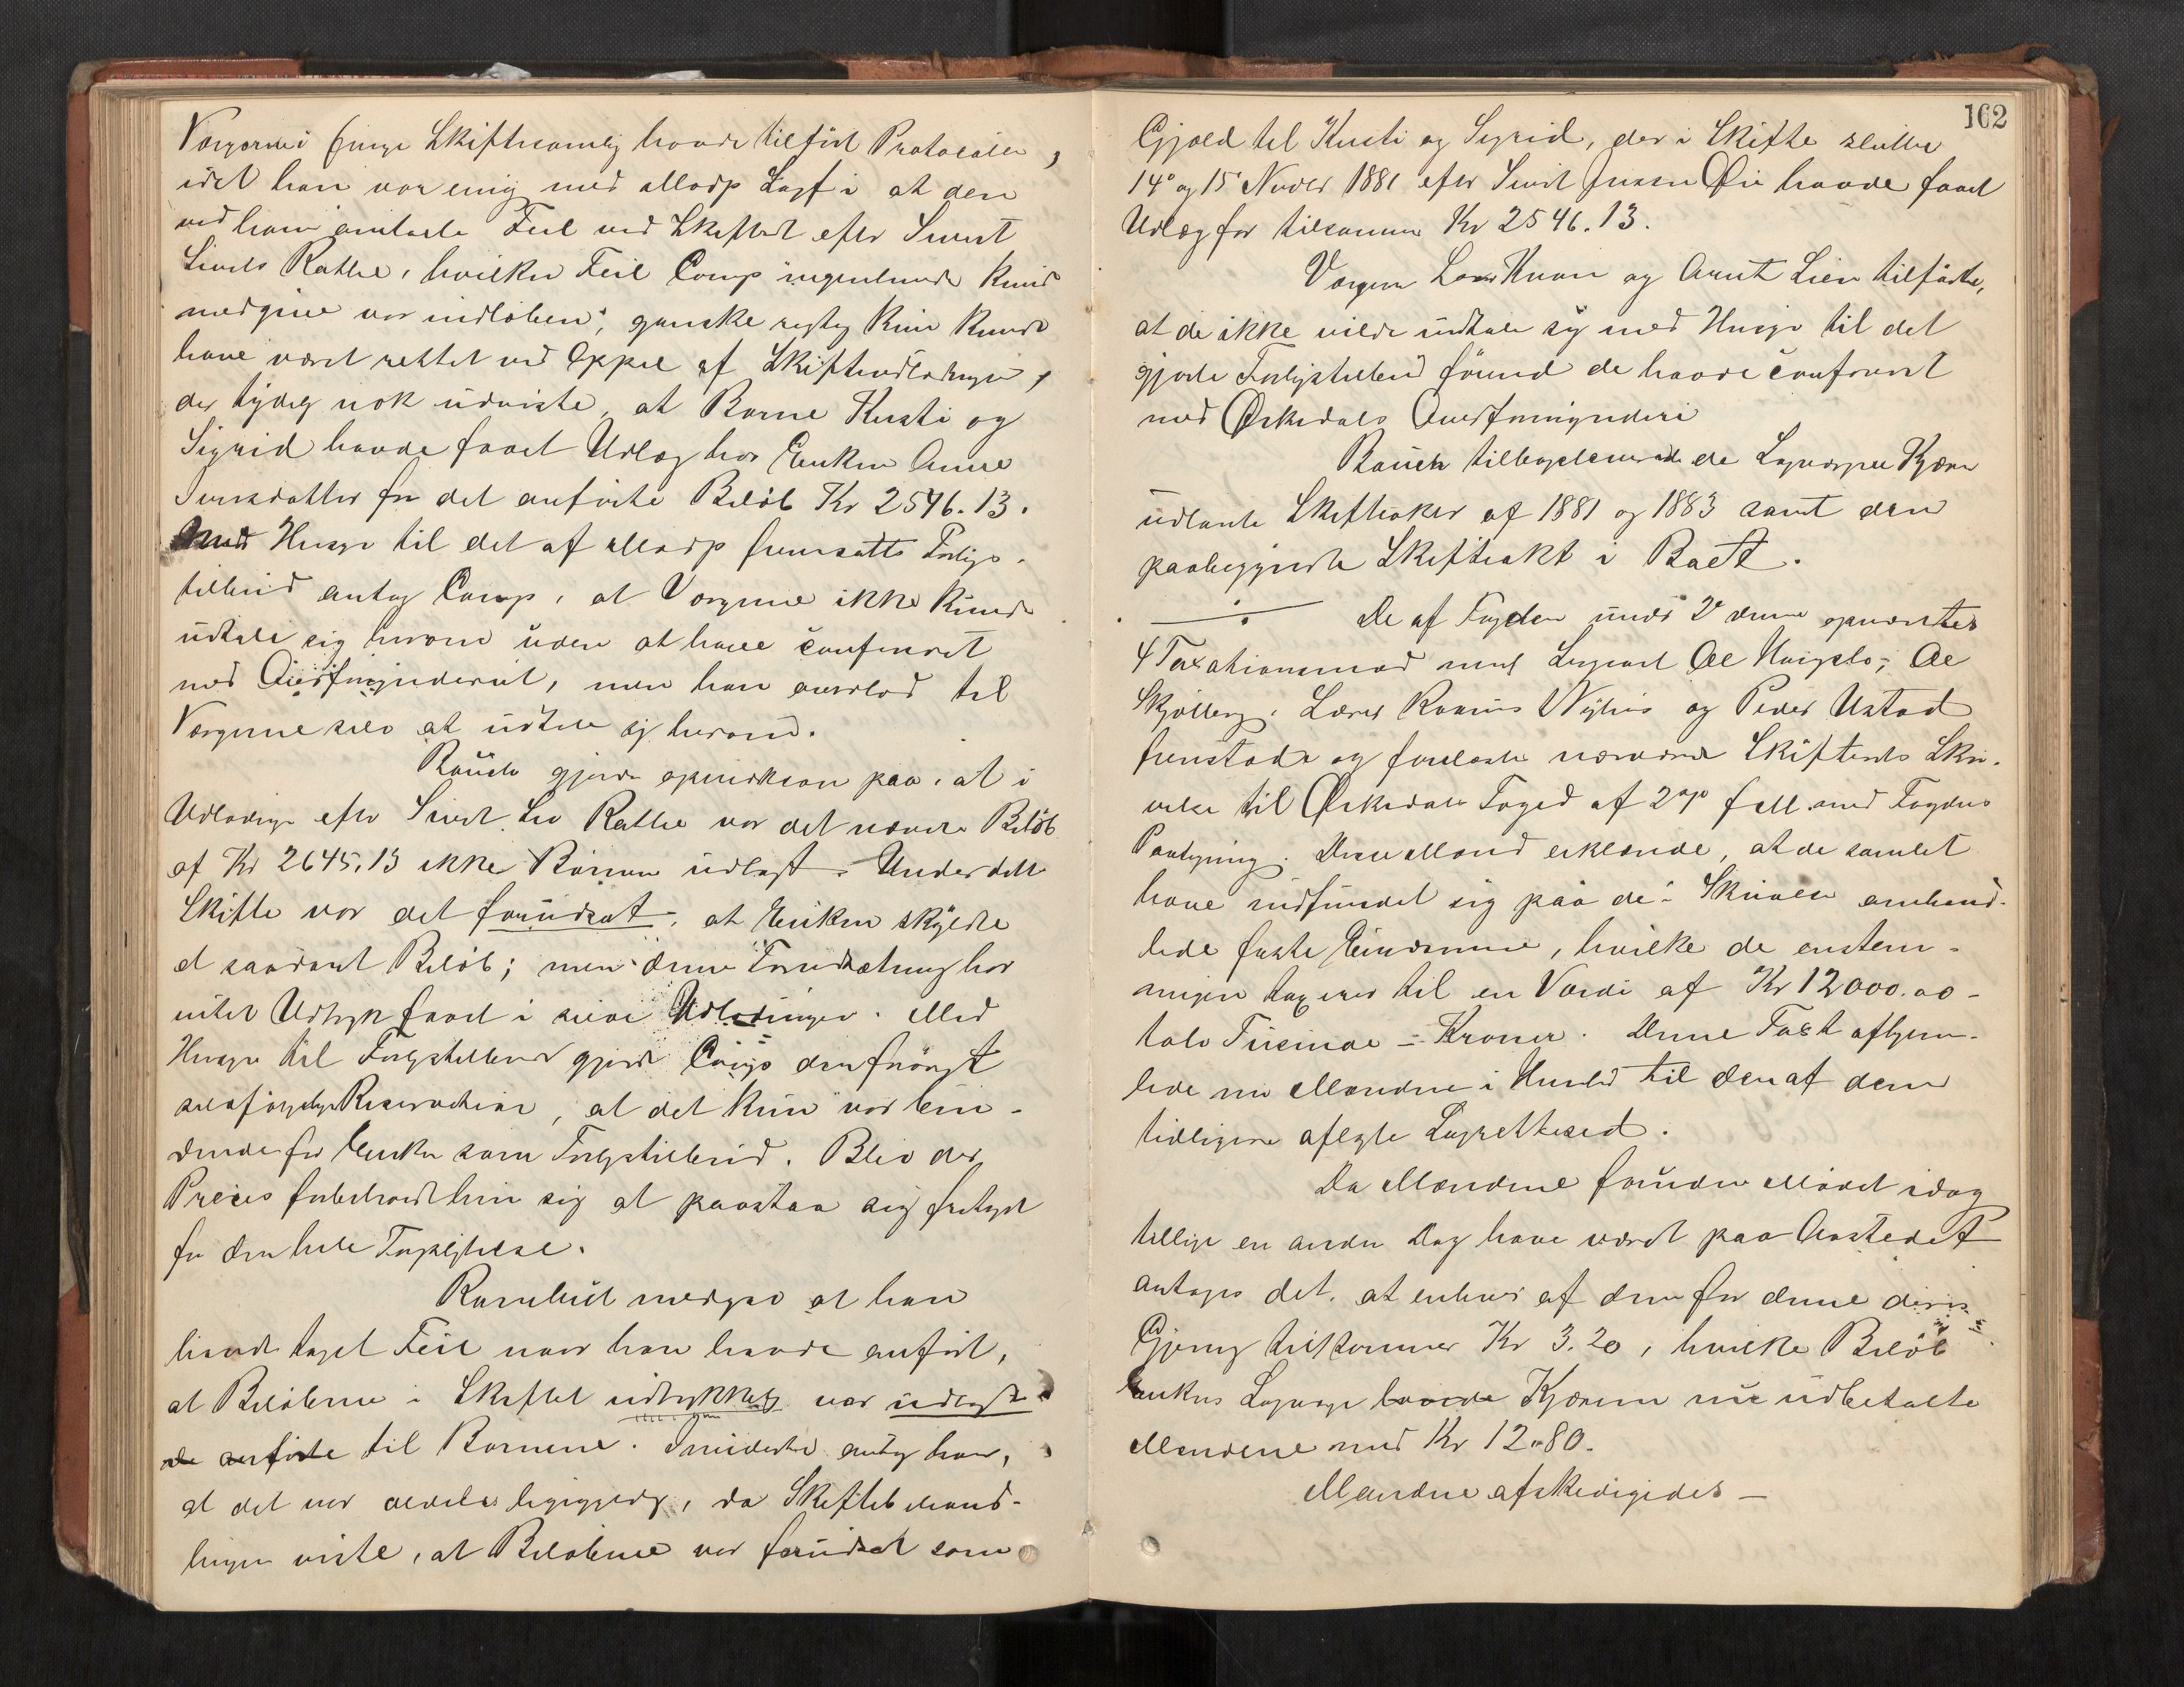 idet han var enig med Modp Sagf i at den
ved ham omtalte Feil ved Skiftet efter Sivert
Siverts Rathe, hvilken Feil Comp ingenlunde kunde
medgive var indløben, ganske rigtig kun kunde
have været rettet ved Appel af Skifteudlodningen,
der tydelig nok udviste, at Børne Kirsti og
Sigrid havde faaet Udlæg hos Enken Anne
Siversdatter for det anførte Beløb Kr 2546.13.
Med Hensyn til det af Modp fremsatte Forligs-
tilbud antog Comp, at Værgerne ikke kunde
udtale sig herom uden at have confereret
med Overformynderiet, men han overlod til
Værgerne selv at udtale sig herom.
Rausch gjorde opmærksom paa, at i
Udlodnge efter Sivert Siv Rathe var det nævnte Beløb
af Kr 2645.13 ikke Børnene udlagt. Under dette
Skifte var det forudsat, at Enken skyldte
et saadant Beløb; men denne Forudsætning har
intet Udtryk faaet i selve Udlodningen. Med
Hensyn til Forligstilbudet gjorde
selvfølgelige Reservation, at det kun var bin-
dende for Enken som Forligstilbud. Blev der
Proces forbeholdt hun sig at paastaa sig frifunden
for den hele
medgav at han
havde taget Feil naar han havde anført,
at Beløbene i Skiftet udtrykkelig var udlagt
de anførte til Børnene. Imidlertid antog han,
at det var aldeles ligegyldig, da Skiftebehand-
lingen viste, at Beløbene var forudsat som
162
Gjæld til Kirsti og Sigrid, der i Skifte sluttet
14de og 15 Novbr 1881 efter Sivert Jensen Øie havde faaet
Udlæg for tilsammen Kr 2546.13.
Værgerne Lars Kvam og Arnt Lien tilførte,
at de ikke vilde udtale sig med Hensyn til det
gjorte Forligstilbud førend de havde confereret
med Ørkedals Overformynderi
Rausch tilbageleverede de Lagværge Kjøren
udlante Skifteakter af 1881 og 1883 samt den
paabegynte Skifteakt i Boet.
De af Fogden under 2 denne opnævnte
4 Taxationsmænd med Lensmand Ole Haugslo, Ole
Skjølberg, Lærer Rasmus Nyhus og Peder Ustad
fremstod og foreloste nærværende Skifterets Skri-
velse til Ørkedals Foged af 2 Apr f all med Fogdens
Paategning. Disse Mænd erklærede, at de samlet
have indfundet sig paa de i Skrivelsen omhand-
lede faste Eiendomme, hvilke de enstem-
migen taxerer til en Værdi af Kr 12000.00 -
tolv Tusinde - Kroner. Denne Taxt afhjem-
lede nu Mændene i Henhold til den af dem
tidligere aflagte Lagrettesed.
Da Mændene foruden Mødet idag
tillige en anden Dag have været paa Aastedet
antages det, at enhver af dem for denne deres
Gjerning tilkommer Kr 3.20, hvilke Beløb
Enkens Lagværge havde Kjøren nu udbetalte
Mændene med Kr 12.80.
Mændene afskedigedes —